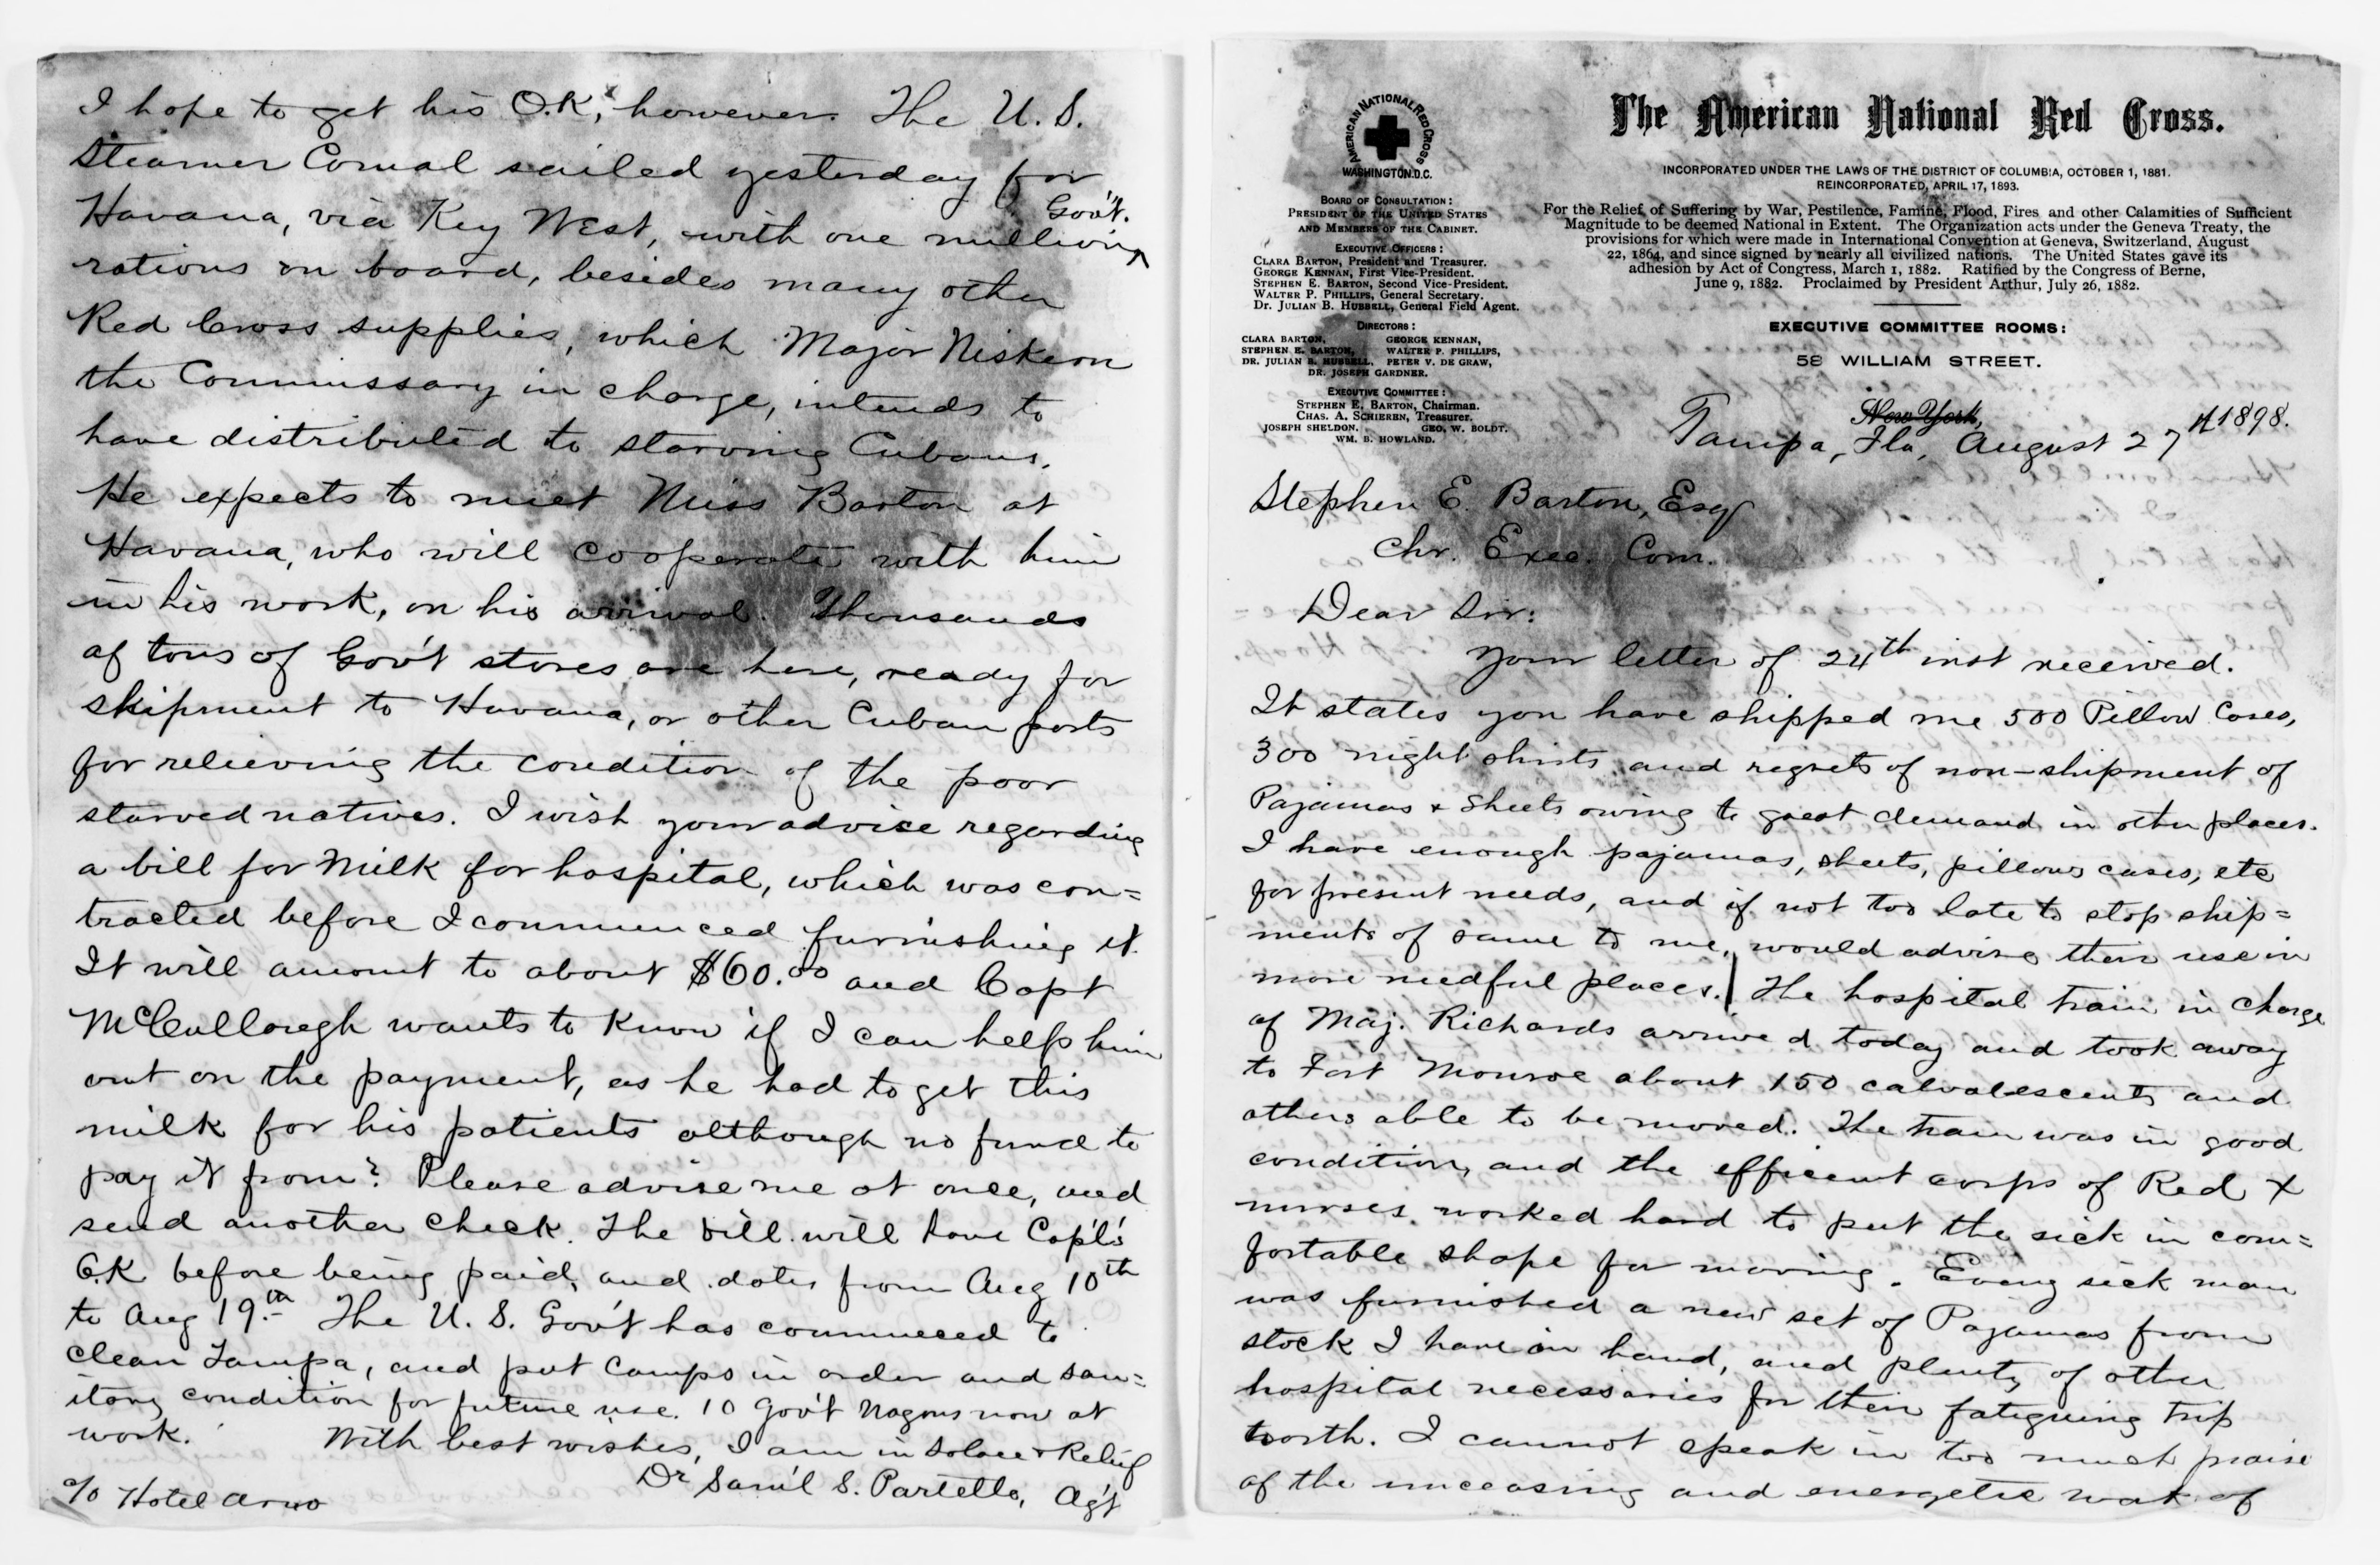 I hope to get his O.K., however. The U. S.
Steamer Comal sailed yesterday for
Havana, via Key West, with one million Gov't.
rations on board, besides many other
Red Cross supplies, which Major Niskern
the Commissary in charge, intends to
have distributed to starving Cubans.
He expects to meet Miss Barton at
Havana, who will cooperate with him
in his work, on his arrival. Thousands
of tons of Gov't stores are here, ready for
shipment to Havana, or other Cuban ports
for relieving the condition of the poor
starved natives. I wish your advice regarding
a bill for Milk for hospital, which was con=
tracted before I commenced furnishing it.
It will amount to about $60.00 and Capt
McCullough wants to know if I can help him
out on the payment, as he had to get this
milk for his patients although no fund to
pay it from? Please advise me at once, and
send another check. The bill will have Capt's
O.K before being paid, and dates from Aug 10th
to Aug 19th. The U. S. Gov't has commenced to
clean Tampa, and put Camps in order and san=
itary condition for future use. 10 Gov't Wagons now at
work. With best wishes, I am in Solace & Relief
Dr Sam'l S. Partello, Ag't
c/o Hotel Arno
AMERICAN NATIONAL RED CROSS
WASHINGTON. D.C.
BOARD OF CONSULTATION:
PRESIDENT OF THE UNITED STATES
AND MEMBERS OF THE CABINET.
EXECUTIVE OFFICERS:
CLARA BARTON, President and Treasurer.
GEORGE KENNAN, First Vice-President.
STEPHEN E. BARTON, Second Vice-President.
WALTER P. PHILLIPS, General Secretary.
DR. JULIAN B. HUBBELL, General Field Agent.
DIRECTORS:
CLARA BARTON, GEORGE KENNAN,
STEPHEN E. BARTON, WALTER P. PHILLIPS,
DR. JULIAN B. HUBBELL, PETER V. DE GRAW,
DR. JOSEPH GARDNER.
EXECUTIVE COMMITTEE:
STEPHEN E. BARTON, Chairman.
CHAS. A. SCHIEREN, Treasurer.
JOSEPH SHELDON. GEO. W. BOLDT.
WM. B. HOWLAND.
The American National Red Cross.
INCORPORATED UNDER THE LAWS OF THE DISTRICT OF COLUMBIA, OCTOBER 1, 1881.
REINCORPORATED, APRIL 17, 1893.
For the Relief of Suffering by War, Pestilence, Famine, Flood, Fires and other Calamities of Sufficient
Magnitude to be deemed National in Extent. The Organization acts under the Geneva Treaty, the
provisions for which were made in International Convention at Geneva, Switzerland, August
22, 1864, and since signed by nearly all civilized nations. The United States gave its
adhesion by Act of Congress, March 1, 1882. Ratified by the Congress of Berne,
June 9, 1882. Proclaimed by President Arthur, July 26, 1882.
EXECUTIVE COMMITTEE ROOMS:
58 WILLIAM STREET.
New York,
Tampa, Fla, August 27th 1898.
Stephen E. Barton, Esq
Chr. Exec. Com.
Dear Sir:
Your letter of 24th inst received.
It states you have shipped me 500 Pillow Cases,
300 night shirts and regrets of non-shipment of
Pajamas & Sheets owing to great demand in other places.
I have enough pajamas, sheets, pillows cases, etc
for present needs, and if not too late to stop ship=
ments of same to me, would advise their use in
more needful places. The hospital train in charge
of Maj. Richards arrived today and took away
to Fort Monroe about 150 calvalescents and
others able to be moved. The train was in good
condition, and the efficient corps of Red X
nurses worked hard to put the sick in com=
fortable shape for moving. Every sick man
was furnished a new set of Pajamas from
stock I have on hand, and plenty of other
hospital necessaries for their fatiguing trip
north. I cannot speak in too much praise
of the unceasing and energetic work of